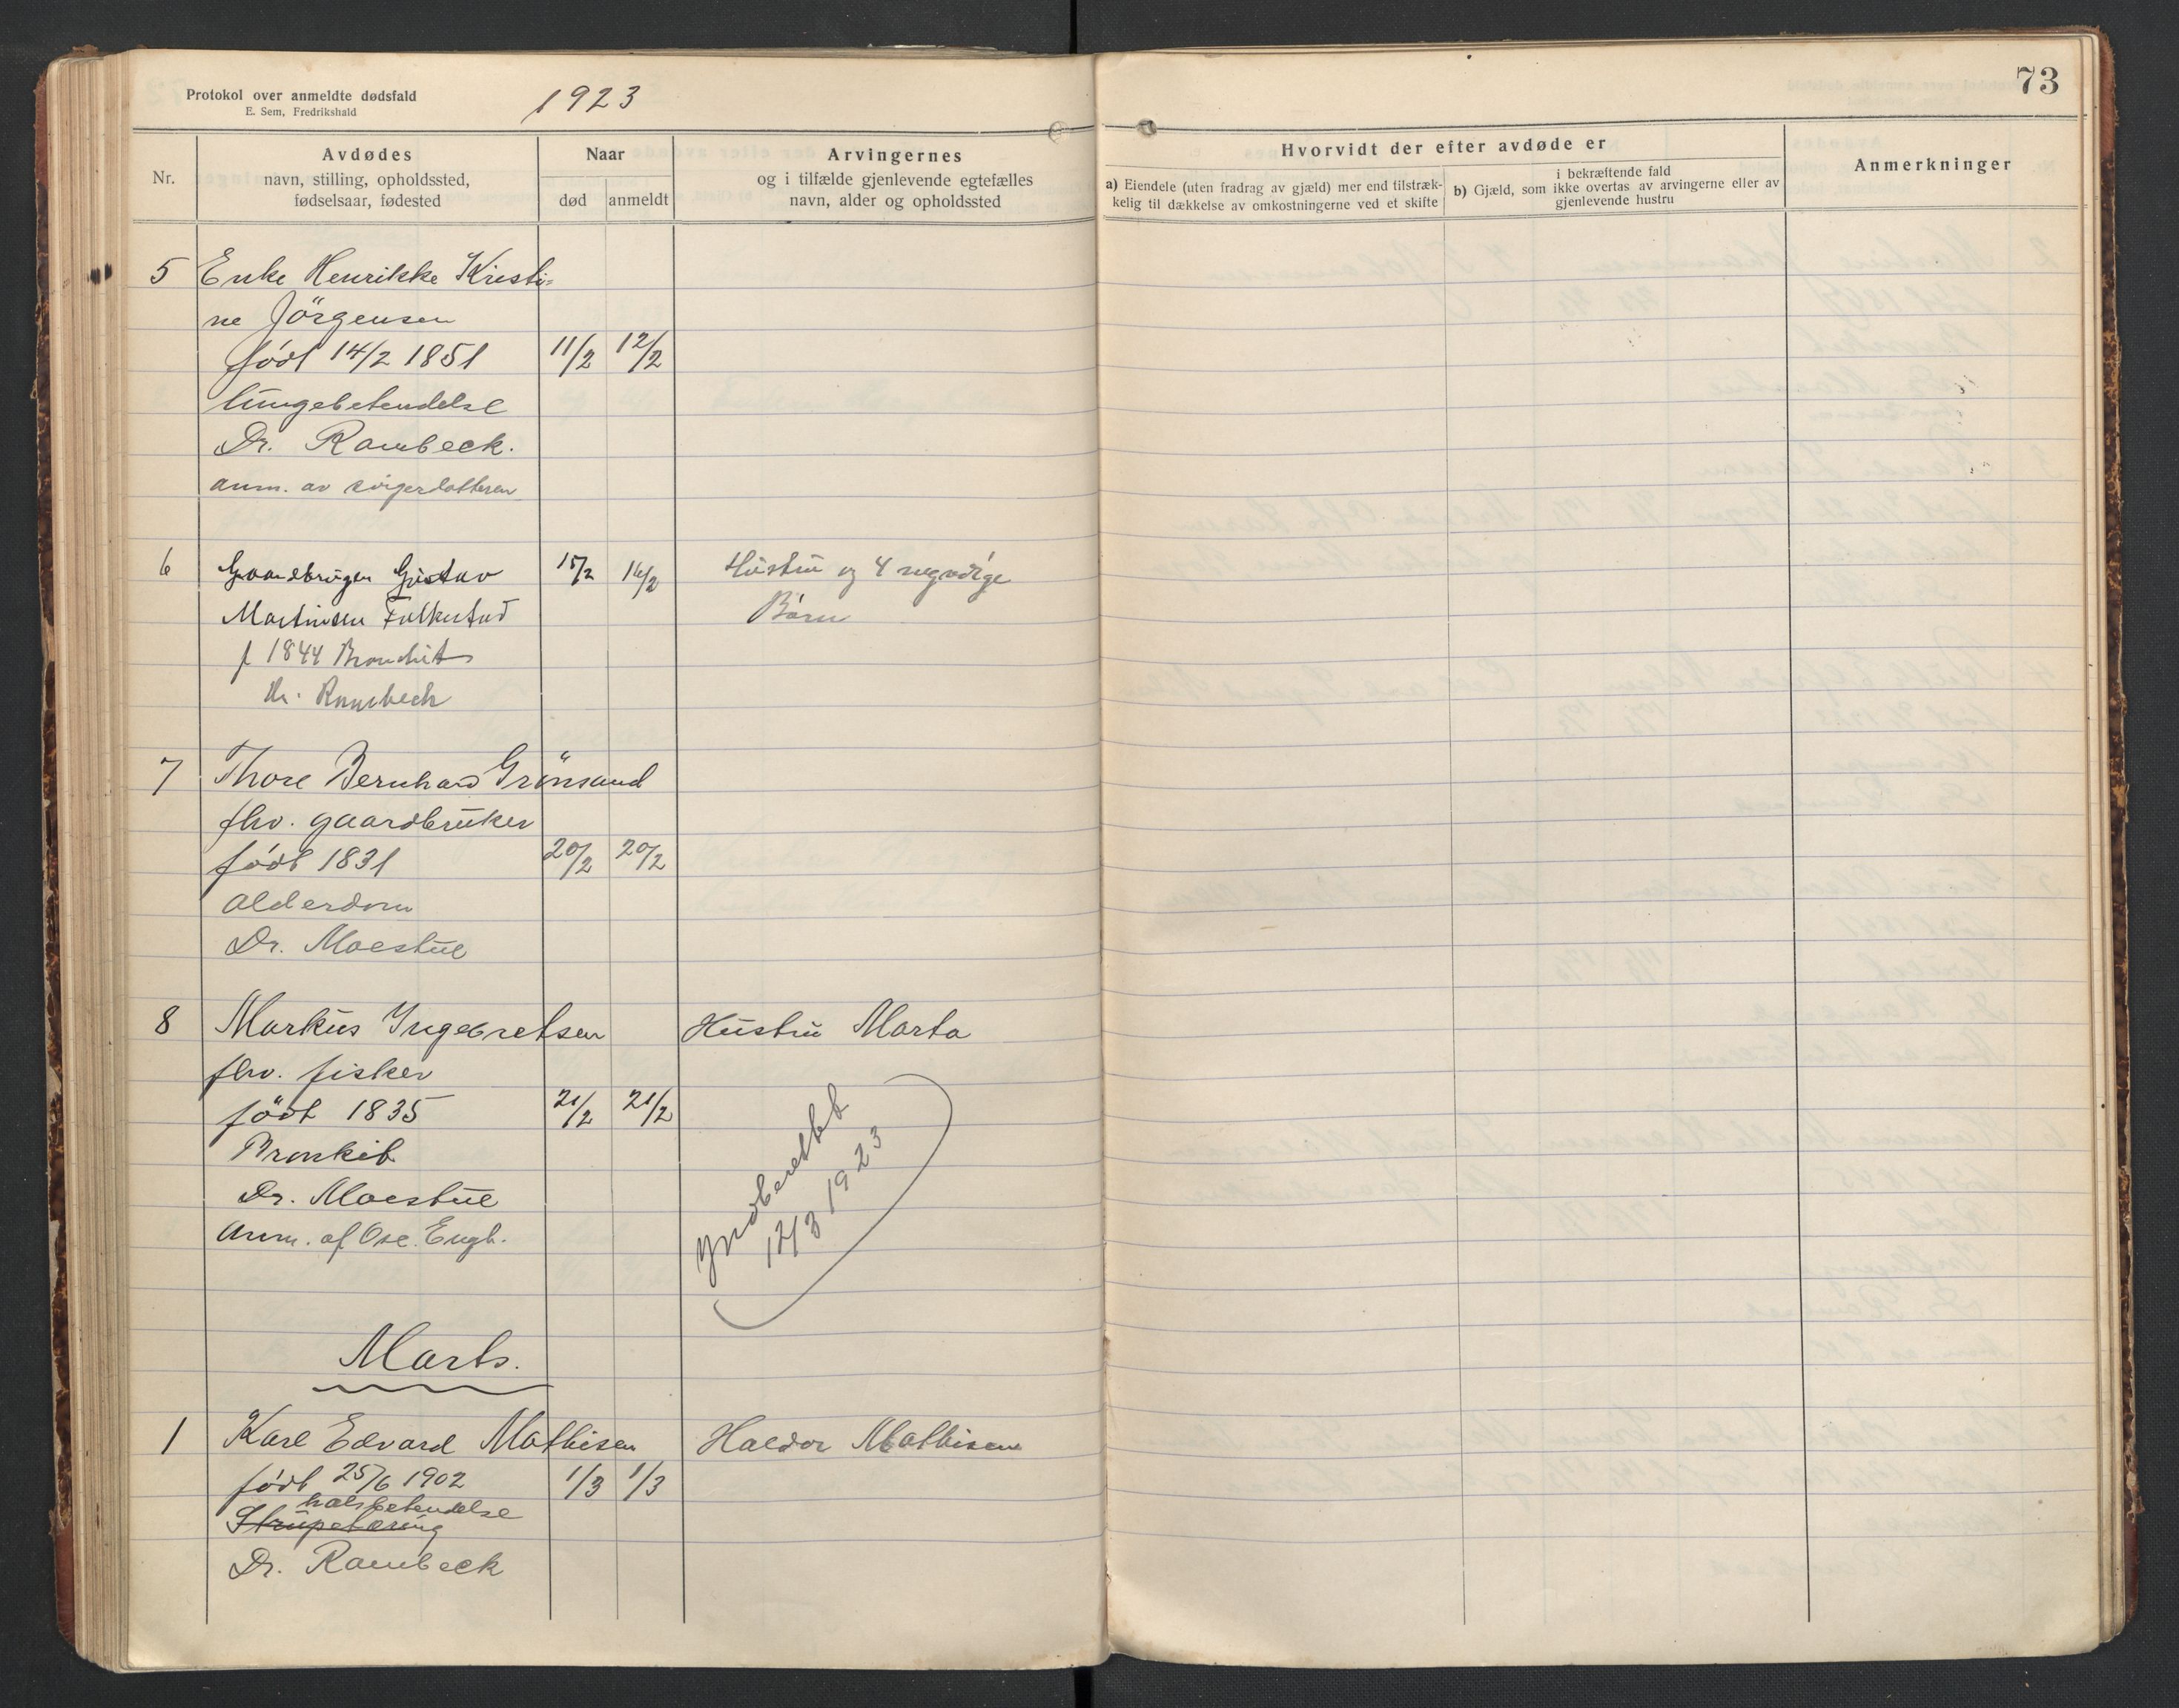 Protokol over anmeldte dødsfald
E. Sem, Fredrikshald
1923
Nr.
Avdødes
navn, stilling, opholdssted,
fødselsaar, fødested
Naar
død anmeldt
Arvingernes
og i tilfælde gjenlevende egtefælles
navn, alder og opholdssted
5 Enke Henrikke Kristi-
ne Jörgensen
født 14/2 1851 11/2 12/2
lungebetendelse
Dr. Rambeck.
anm. av svigerdatteren
6 Gaardbruger Gustav 15/2 16/2 Hustru og 4 myndige
Martinsen Folkestad Börn
f 1844 Bronchit
Dr. Rambech
7 Thore Bernhard Grönsand
fhv. gaardbruker
født 1831 20/2 20/2
alderdom
Dr. Moestue
8 Markus Ingebretsen Hustru Marta
fhv. fisker
födt 1835 21/2 21/2
Bronkit
Dr. Moestue
Anm. af Ose. Engh.
Indberettet
12/3 1923
Marts.
1 Karl Edvard Mathisen Haldor Mathisen
født 25/6 1902 1/3 1/3
halsbetendelse
Strupetæring
Dr. Rambeck
73
Hvorvidt der efter avdøde er
a) Eiendele (uten fradrag av gjæld) mer end tilstræk-
kelig til dækkelse av omkostningerne ved et skifte
i bekræftende fald
b) Gjæld, som ikke overtas av arvingerne eller av
gjenlevende hustru
Anmerkninger